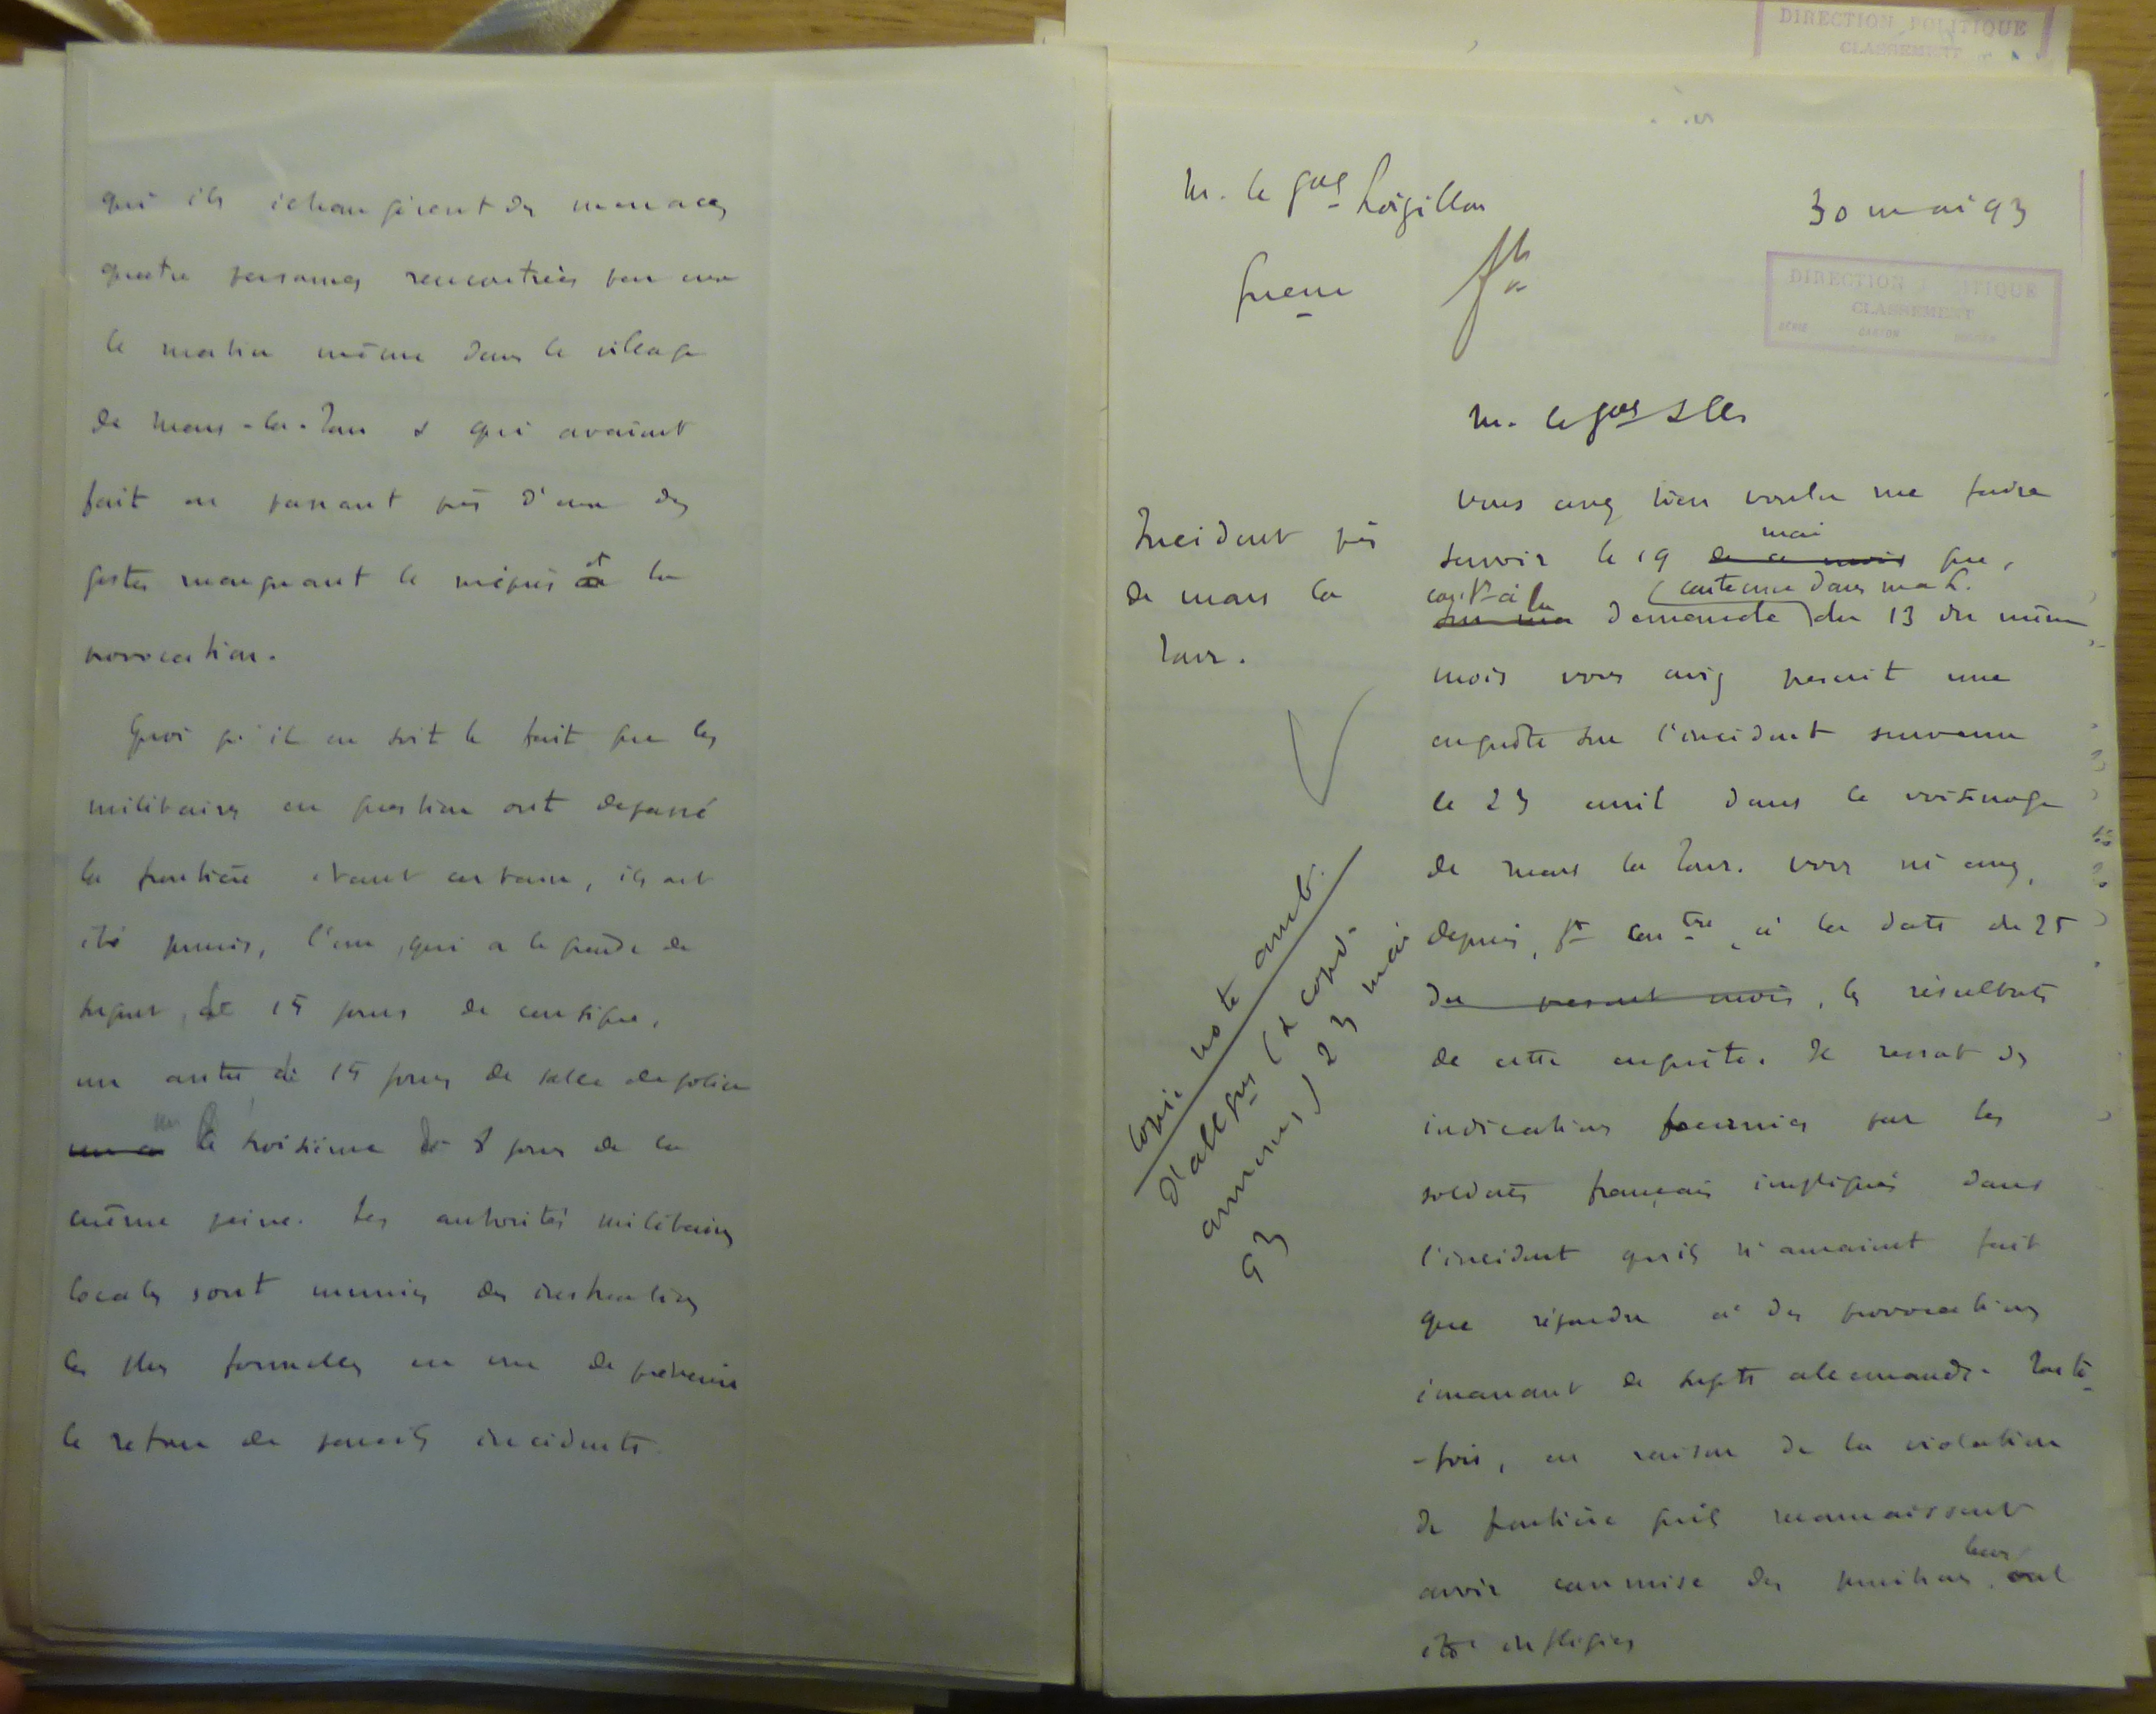 qui ils échangèrent des menaces
quatre personnes rencontrées par eux
le matin même dans le village
de Mars-la-Tour & qui avaient
fait en passant près d'eux des
gestes marquant le mépris et la
provocation.
Quoi qu'il en soit le fait que les
militaires en question ont dépassé
la frontière étant certain, ils ont
été punis, l'un, qui a le grade de
sergent, de 15 jours de consigne,
un autre de 15 jours de salle de police
le troisième de 8 jours de la
même peine. Les autorités militaires
locales sont munies des instructions
les plus formelles en vue de prévenir
le retour de pareils incidents.
DIRECTION POLITIQUE
CLASSEMENT
M. le Gal Loizillon
Guerre
30 mai 93
DIRECTION POLITIQUE
CLASSEMENT
SÉRIE CARTON DOSSIER
M. le Gal &
Incident près
de Mars la
Tour.
Vous avez bien voulu me faire
savoir le 19 de ce mois mai que,
sur ma à la demande (contenue dans ma L.) du 13 du même
mois vous aviez prescrit une
enquête sur l'incident survenu
le 23 avril dans le voisinage
de Mars la Tour. Vous m'avez,
depuis, à la date du 25
du présent mois, les résultats
de cette enquête. Il ressort des
indications fournies par les
soldats français impliqués dans
l'incident qu'ils n'auraient fait
que répondre à des provocations
émanant de sujets allemands. Toute-
-fois, en raison de la violation
de frontière qu'ils reconnaissent
avoir commise des punitions leur ont
été infligées
Copie note amb.
d'Allegne (& copie
annexes) 23 mai
93